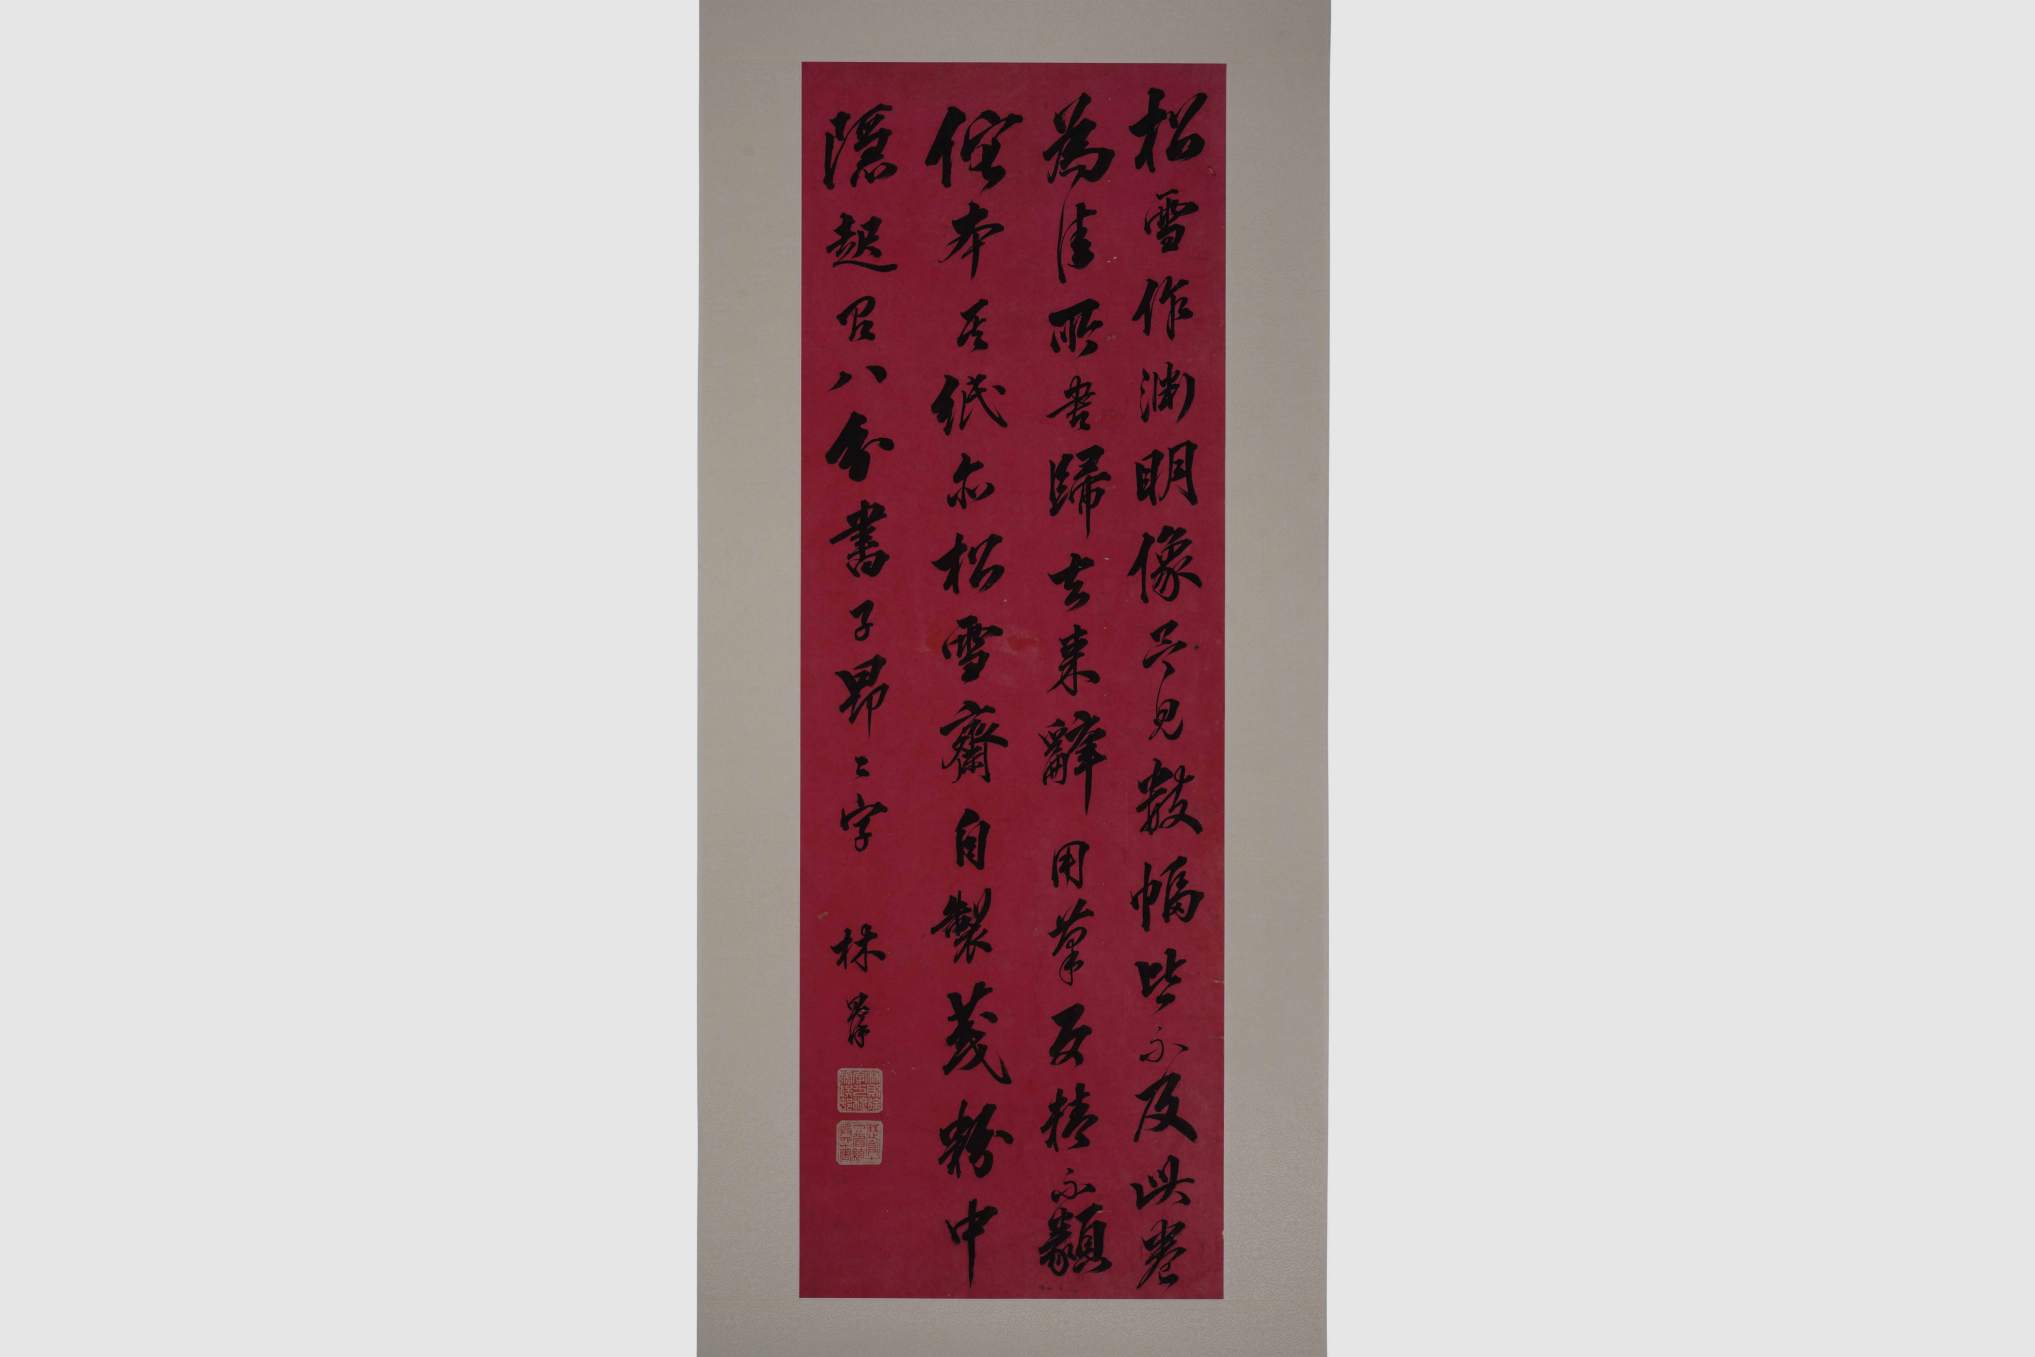 松雪作淵明像只見數幅皆不及此卷
為佳所書歸去來辭用筆更精不類
佗本其紙亦松雪齋自製箋粉中
隱起㠯八分書子昂二字
林則徐